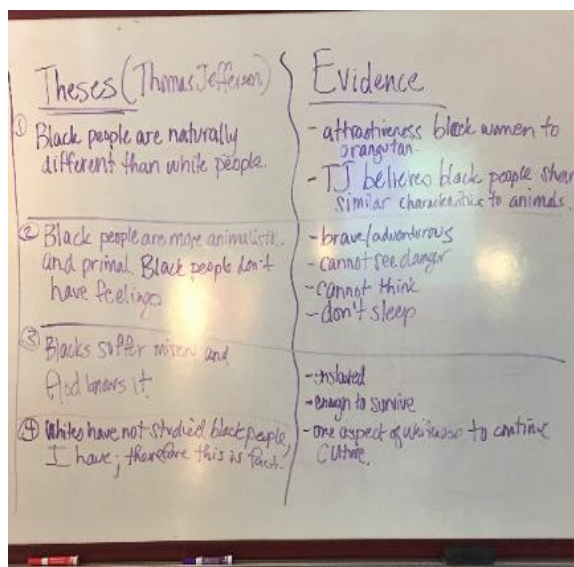 Theses (Thomas Jefferson)
① Black people are naturally
different than white people.
② Black people are more animalistic
and primal. Black people don't
have feelings
③ Blacks suffer misery and
God knows it.
④ Whites have not studied black people,
I have; therefore this is fact.
Evidence
- attractiveness black women to
orangutan.
- TJ believes black people share
similar characteristics to animals.
- brave/adventurous
- cannot see danger
- cannot think
- don't sleep
- enslaved
- enough to survive
- one aspect of whiteness to continue
culture.